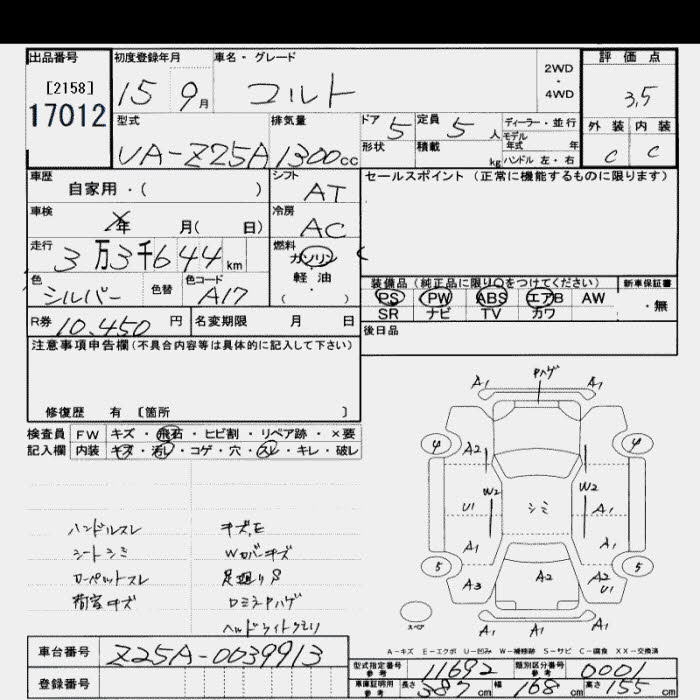 出品番号 初度登録年月 車名・グレード 評価点
[2158] 15 9月 コルト 2WD・4WD 3,5
17012
型式 排気量 ドア 5 定員 5人 ディーラー・並行 外装 内装
モデル年式 年
UA-Z25A 1300cc 形状 積載 kg ハンドル 左・右 C C
車歴 シフト セールスポイント(正常に機能するものに限ります)
自家用・( ) AT
車検 年 月( 日) 冷房 AC
走行 3万3千644km 燃料 ガソリン
軽・油
( ・ )
色 シルバー 色替 色コード A17
装備品(純正品に限り○をつけてください) 新車保証書
PS PW ABS エアB AW ・無
SR ナビ TV カワ
R券 10,450円 名変期限 月 日 後日品
注意事項申告欄(不具合内容等は具体的に記入して下さい)
修復歴 有 [箇所 ]
検査員 FW キズ・飛石・ヒビ割・リペア跡・×要
記入欄 内装 キズ・汚レ・コゲ・穴・スレ・キレ・破レ
ハンドルスレ
シートシミ
カーペットスレ
荷室キズ
Wカバーキズ
足廻りS
ロミラPハゲ
ヘッドライトクモリ
A1 Pハゲ A1
4 A2 4
U1 W2 シミ W2 A1
A1 A1
5 A3 A2 A2 U1 5
スペア A1 A1 A1
A-キズ E-エクボ U-凹み W-補修跡 S-サビ C-腐食 XX-交換済
車台番号 Z25A-0039913
登録番号
型式指定番号 参考 11692 類別区分番号 参考 0001
車庫証明用 参考 長さ 387cm 幅 168cm 高さ 155cm